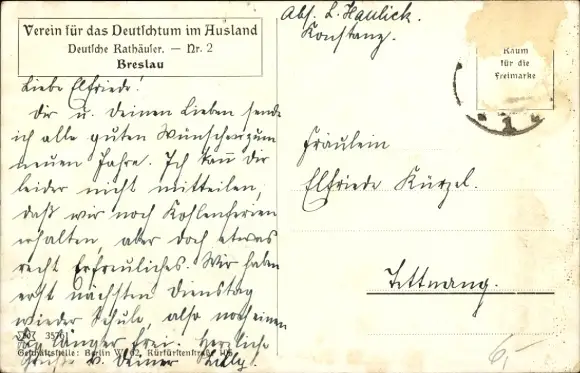 Verein für das Deutschtum im Ausland
Deutsche Rathäuser. — Nr. 2
Breslau
Abs. L. Haulick.
Konstanz.
Raum
für die
Freimarke
Liebe Elfriede!
Dir u. Deinen Lieben sende
ich alle guten Wünsche zum
neuen Jahre. Ich kann Dir
leider nicht mitteilen,
daß wir noch Kohlenferien
erhalten, aber doch etwas
recht Erfreuliches. Wir haben
erst nächsten Dienstag
wieder Schule, also noch einen
Tag länger frei. Herzliche
Grüße v. Deiner
Fräulein
Elfriede Kürzel.
Tettnang.
3576
Geschäftsstelle: Berlin W. 62, Kurfürstenstraße 105.
6,-